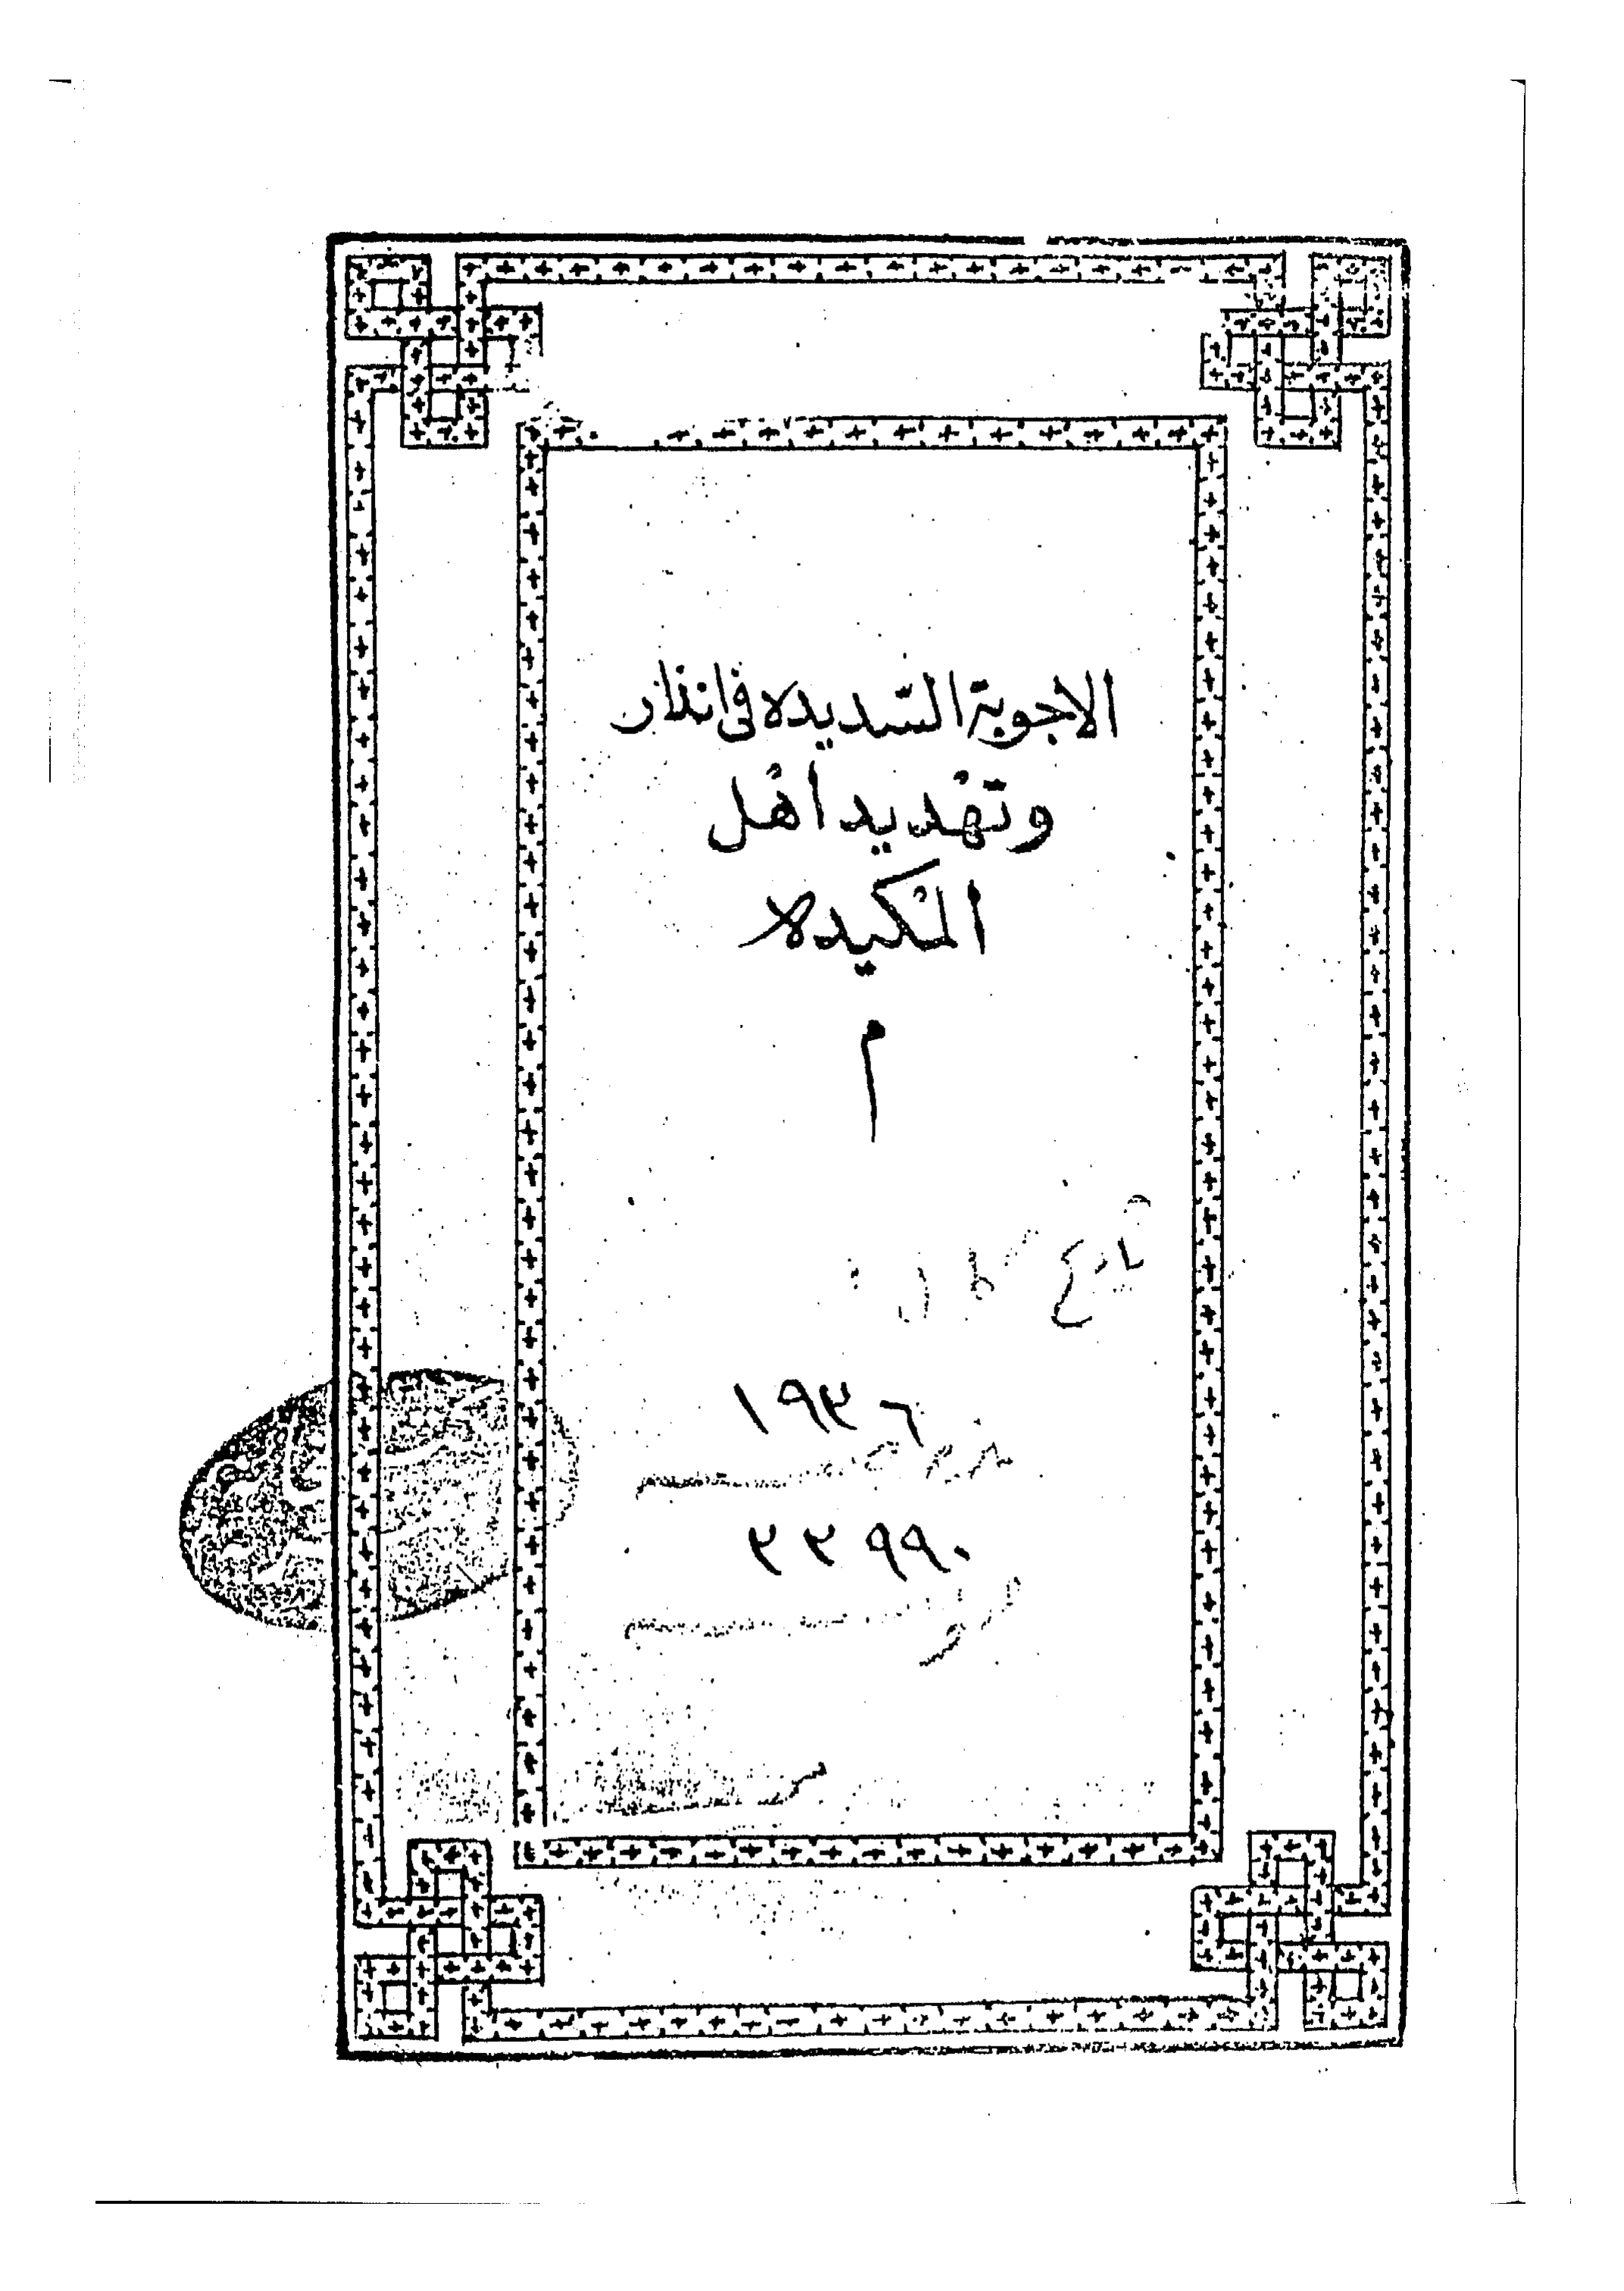 الاجوبة السّديده فى انذار
وتهديد اهل
المكيده
م
١٩٣٦
٣٣٩٩٠